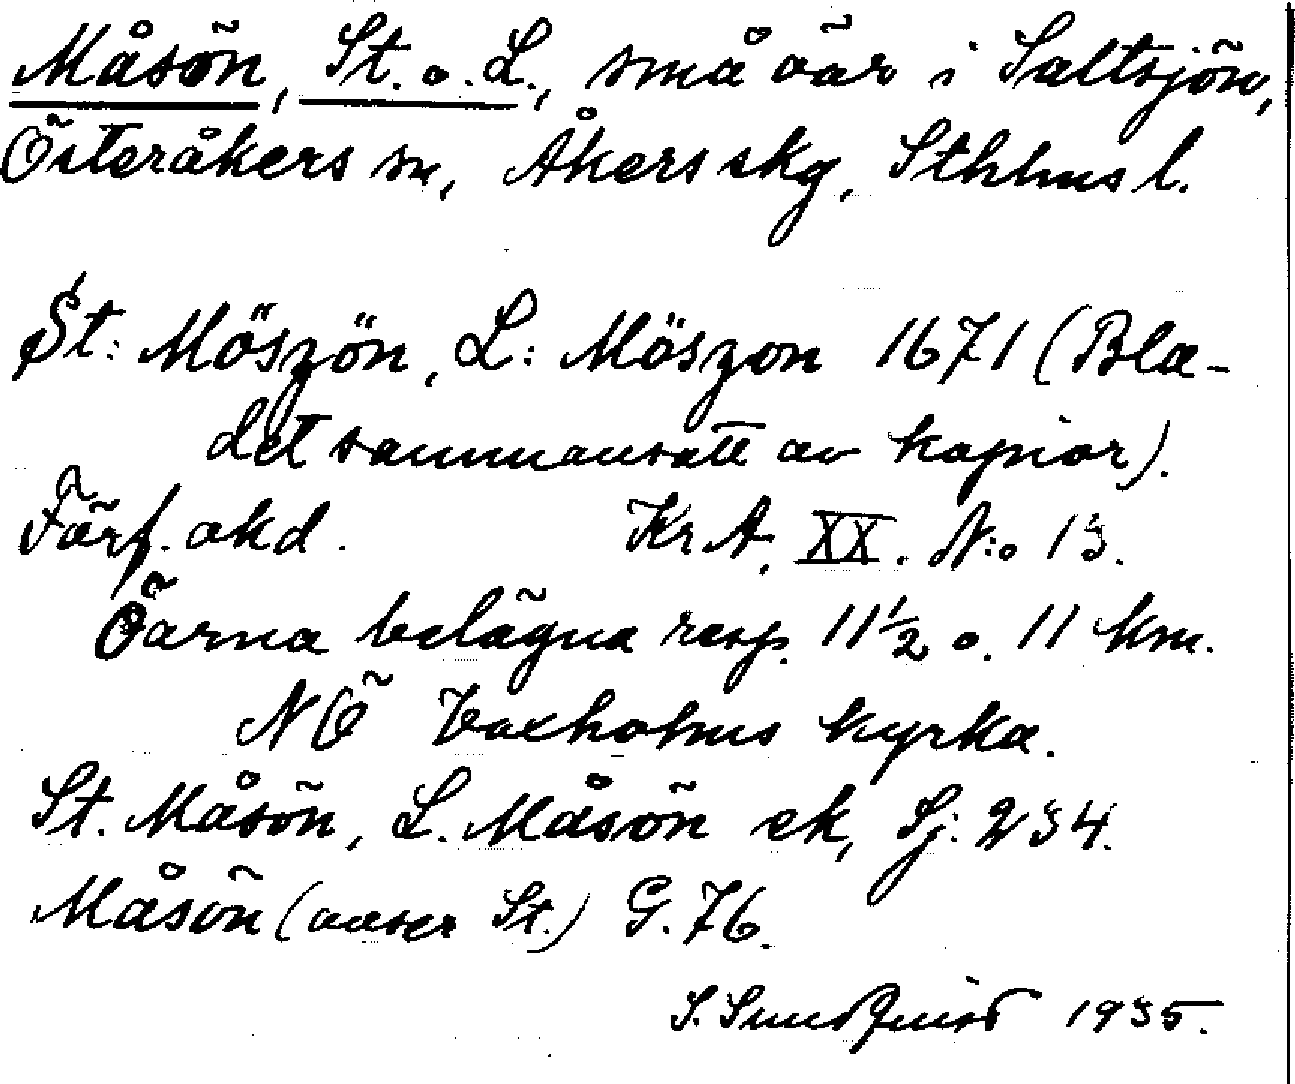 Måsön, St. o. L., små öar i Saltsjön,
Österåkers sn, Åkers skg, Sthlms l.
St: Möszön, L: Möszon 1671 (Bla-
det sammansatt av kopior).
Förf. okd. KrA, XX. N:o 13.
Öarna belägna resp. 11½ o. 11 km.
NÖ Vaxholms kyrka.
St. Måsön, L. Måsön ek, Sj: 234.
Måsön (avser St.) G. 76.
S. Sundquist 1935.